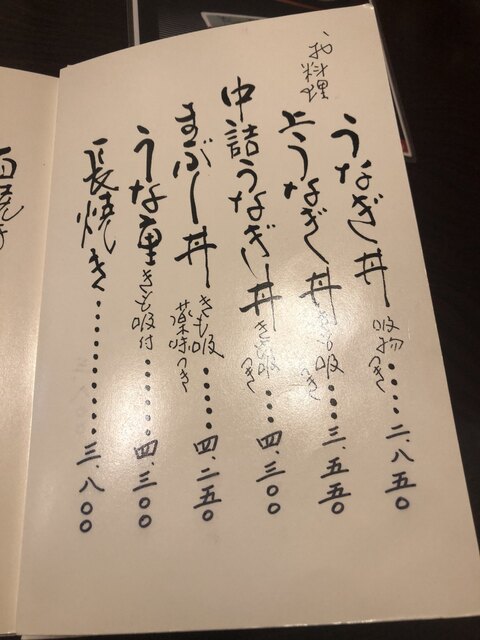 お料理
うなぎ丼 吸物つき‥‥二、八五〇
上うなぎ丼 きも吸つき‥‥三、五五〇
中詰うなぎ丼 きも吸つき‥‥四、三〇〇
まぶし丼 きも吸 薬味つき‥‥四、二五〇
うな重 きも吸付‥‥‥四、三〇〇
長焼き‥‥‥‥‥三、八〇〇
白焼き